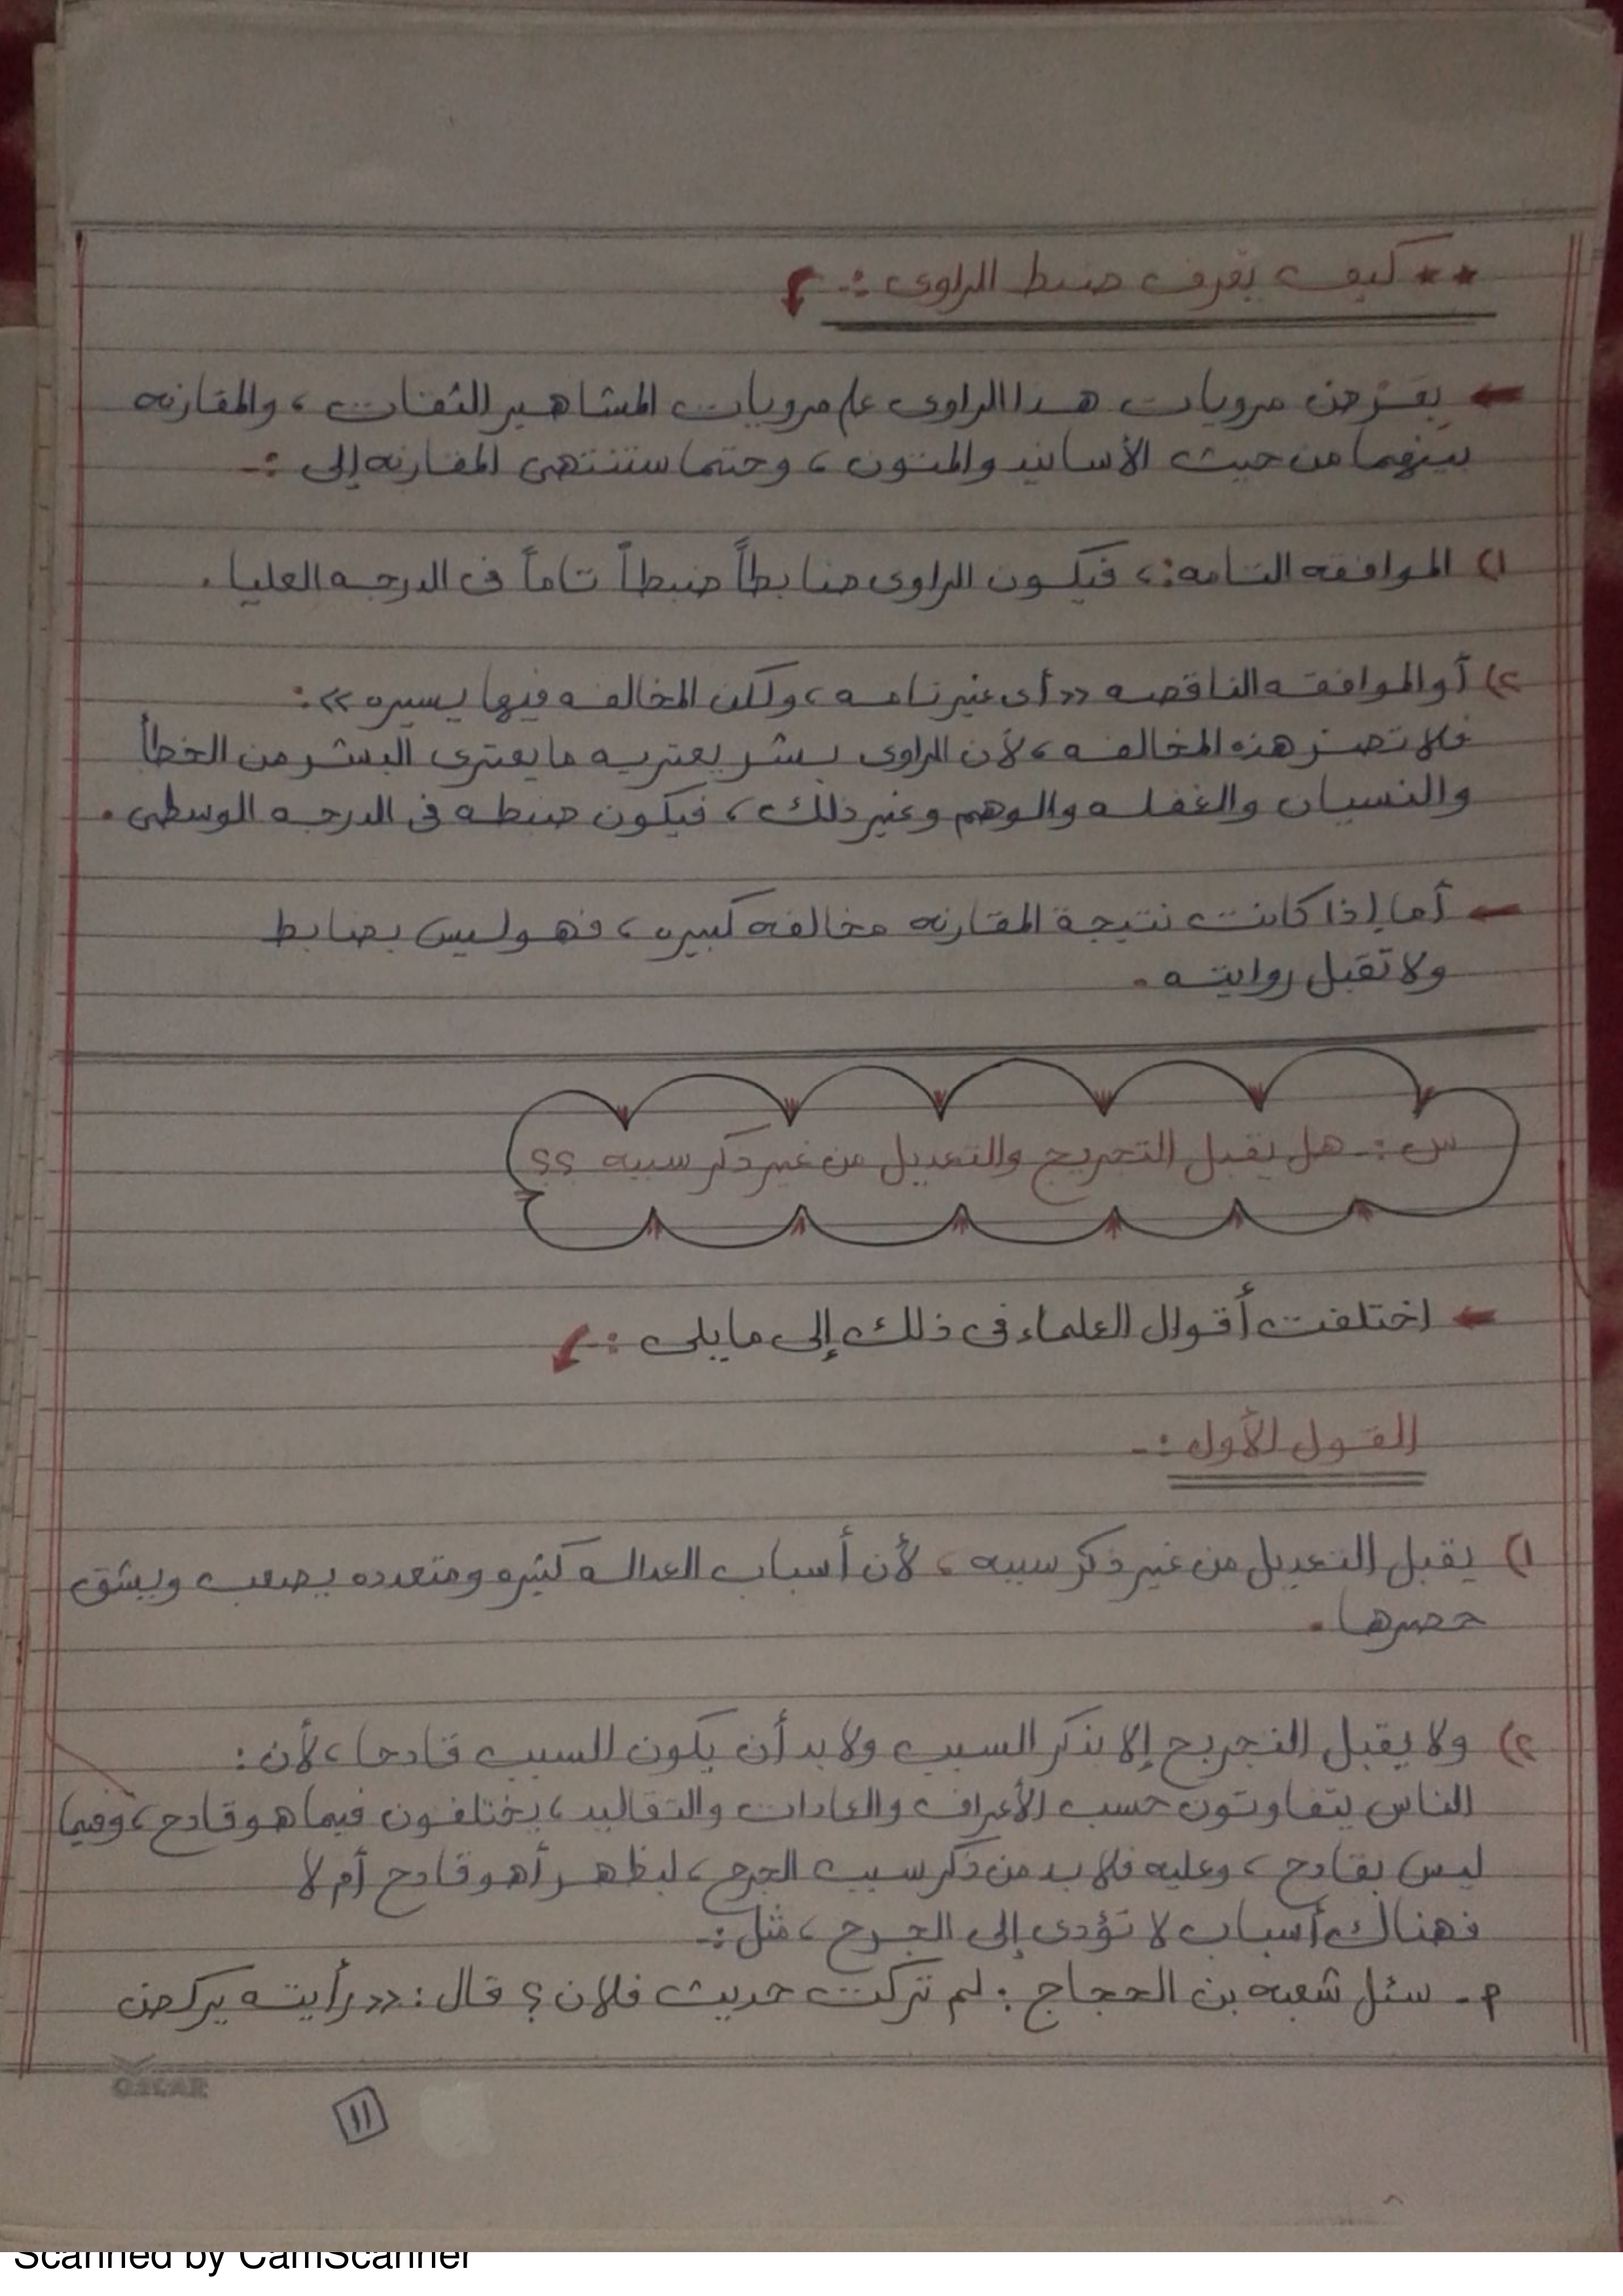 ** كيف يعرف ضبط الراوى :-
← بعرض مرويات هذا الراوى على مرويات المشاهير الثقات ، والمقارنه
بينهما من حيث الأسانيد والمتون ، وحتما ستنتهى المقارنه إلى :-
١) الموافقه التامه : ، فيكون الراوى ضابطاً ضبطاً تاماً فى الدرجه العليا .
٢) أو الموافقه الناقصه << أى غير تامه ، ولكن المخالفه فيها يسيره >> :
فلا تضر هذه المخالفه ، لأن الراوى بشر يعتريه ما يعترى البشر من الخطأ
والنسيان والغفله والوهم وغير ذلك ، فيكون ضبطه فى الدرجه الوسطى .
← أما إذا كانت نتيجة المقارنه مخالفه كبيره ، فهو ليس بضابط
ولا تقبل روايته .
س :- هل يقبل التجريح والتعديل من غير ذكر سببه ؟؟
← اختلفت أقوال العلماء فى ذلك إلى مايلى :-
القول الأول :-
١) يقبل التعديل من غير ذكر سببه ، لأن أسباب العداله كثيره ومتعدده يصعب ويشق
حصرها .
٢) ولا يقبل التجريح إلا بذكر السبب ولا بد أن يكون السبب قادحا ، لأن :
الناس يتفاوتون حسب الأعراف والعادات والتقاليد ، يختلفون فيما هو قادح ، وفيما
ليس بقادح ، وعليه فلا بد من ذكر سبب الجرح ، ليظهر أهو قادح أم لا
فهناك أسباب لا تؤدى إلى الجرح ، مثل :-
م- سئل شعبه بن الحجاج : لم تركت حديث فلان ؟ قال : << رأيته يركض
OSCAR
١١
Scanned by CamScanner